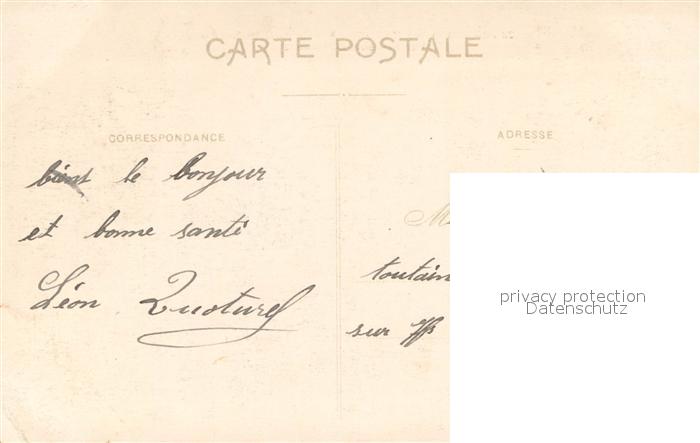 CARTE POSTALE
CORRESPONDANCE
ADRESSE
le bonjour
et bonne santé
Léon
M
toutain
sur
privacy protection
Datenschutz